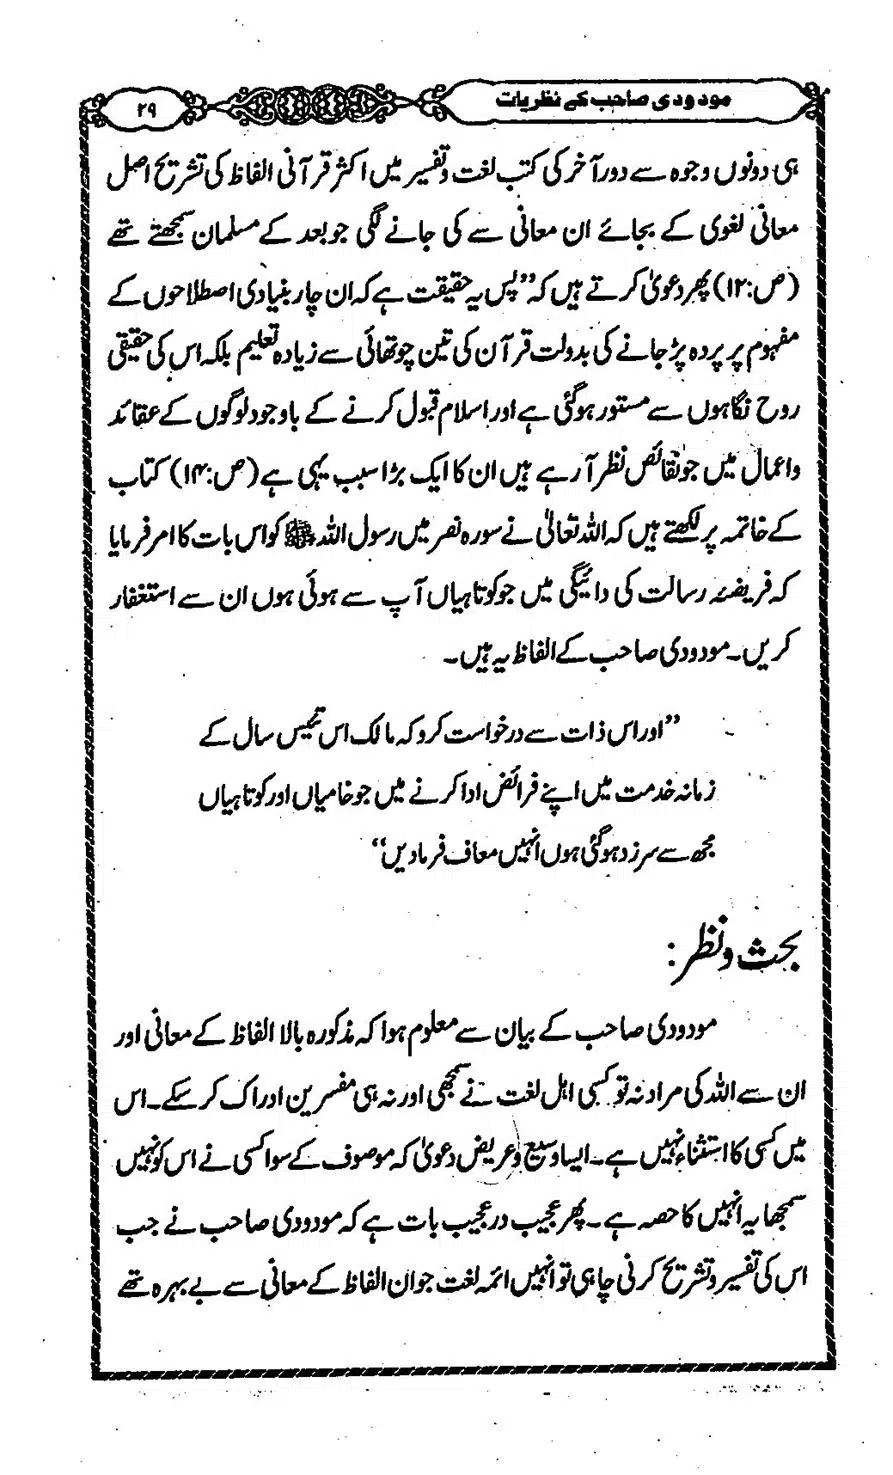 مودودی صاحب کے نظریات
۲۹
ہی دونوں وجوہ سے دور آخر کی کتب لغت و تفسیر میں اکثر قرآنی الفاظ کی تشریح اصل
معانی لغوی کے بجائے ان معانی سے کی جانے لگی جو بعد کے مسلمان سمجھتے تھے
(ص:۱۲) پھر دعویٰ کرتے ہیں کہ ”پس یہ حقیقت ہے کہ ان چار بنیادی اصطلاحوں کے
مفہوم پر پردہ پڑ جانے کی بدولت قرآن کی تین چوتھائی سے زیادہ تعلیم بلکہ اس کی حقیقی
روح نگاہوں سے مستور ہوگئی ہے اور اسلام قبول کرنے کے باوجود لوگوں کے عقائد
و اعمال میں جو نقائص نظر آرہے ہیں ان کا ایک بڑا سبب یہی ہے (ص:۱۴) کتاب
کے خاتمہ پر لکھتے ہیں کہ اللہ تعالیٰ نے سورہ نصر میں رسول اللہ ﷺ کو اس بات کا امر فرمایا
کہ فریضئہ رسالت کی دائیگی میں جو کوتاہیاں آپ سے ہوئی ہوں ان سے استغفار
کریں۔ مودودی صاحب کے الفاظ یہ ہیں۔
”اور اس ذات سے درخواست کرو کہ مالک اس تئیس سال کے
زمانہ خدمت میں اپنے فرائض ادا کرنے میں جو خامیاں اور کوتاہیاں
مجھ سے سرزد ہوگئی ہوں انہیں معاف فرمادیں“
بحث و نظر:
مودودی صاحب کے بیان سے معلوم ہوا کہ مذکورہ بالا الفاظ کے معانی اور
ان سے اللہ کی مراد نہ تو کسی اہل لغت نے سمجھی اور نہ ہی مفسرین ادراک کر سکے۔ اس
میں کسی کا استثناء نہیں ہے۔ ایسا وسیع و عریض دعویٰ کہ موصوف کے سوا کسی نے اس کو نہیں
سمجھا یہ انہیں کا حصہ ہے۔ پھر عجیب در عجیب بات ہے کہ مودودی صاحب نے جب
اس کی تفسیر و تشریح کرنی چاہی تو انہیں ائمہ لغت جو ان الفاظ کے معانی سے بے بہرہ تھے